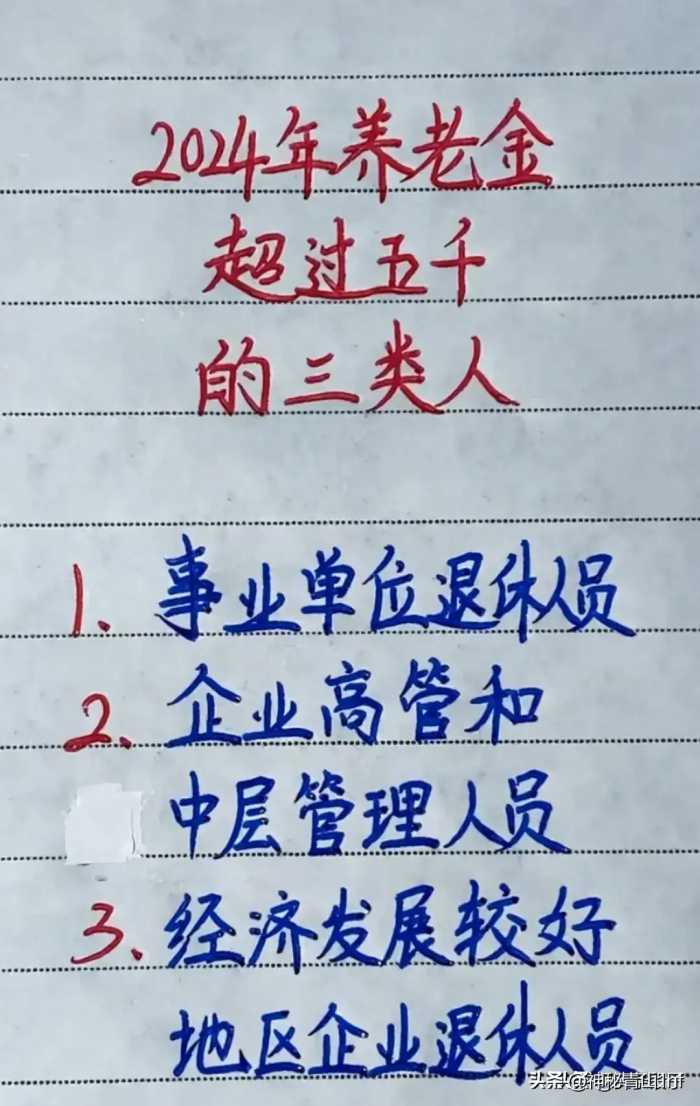 2024年养老金
超过五千
的三类人
1、事业单位退休人员
2、企业高管和
中层管理人员
3、经济发展较好
地区企业退休人员
头条@神秘青山